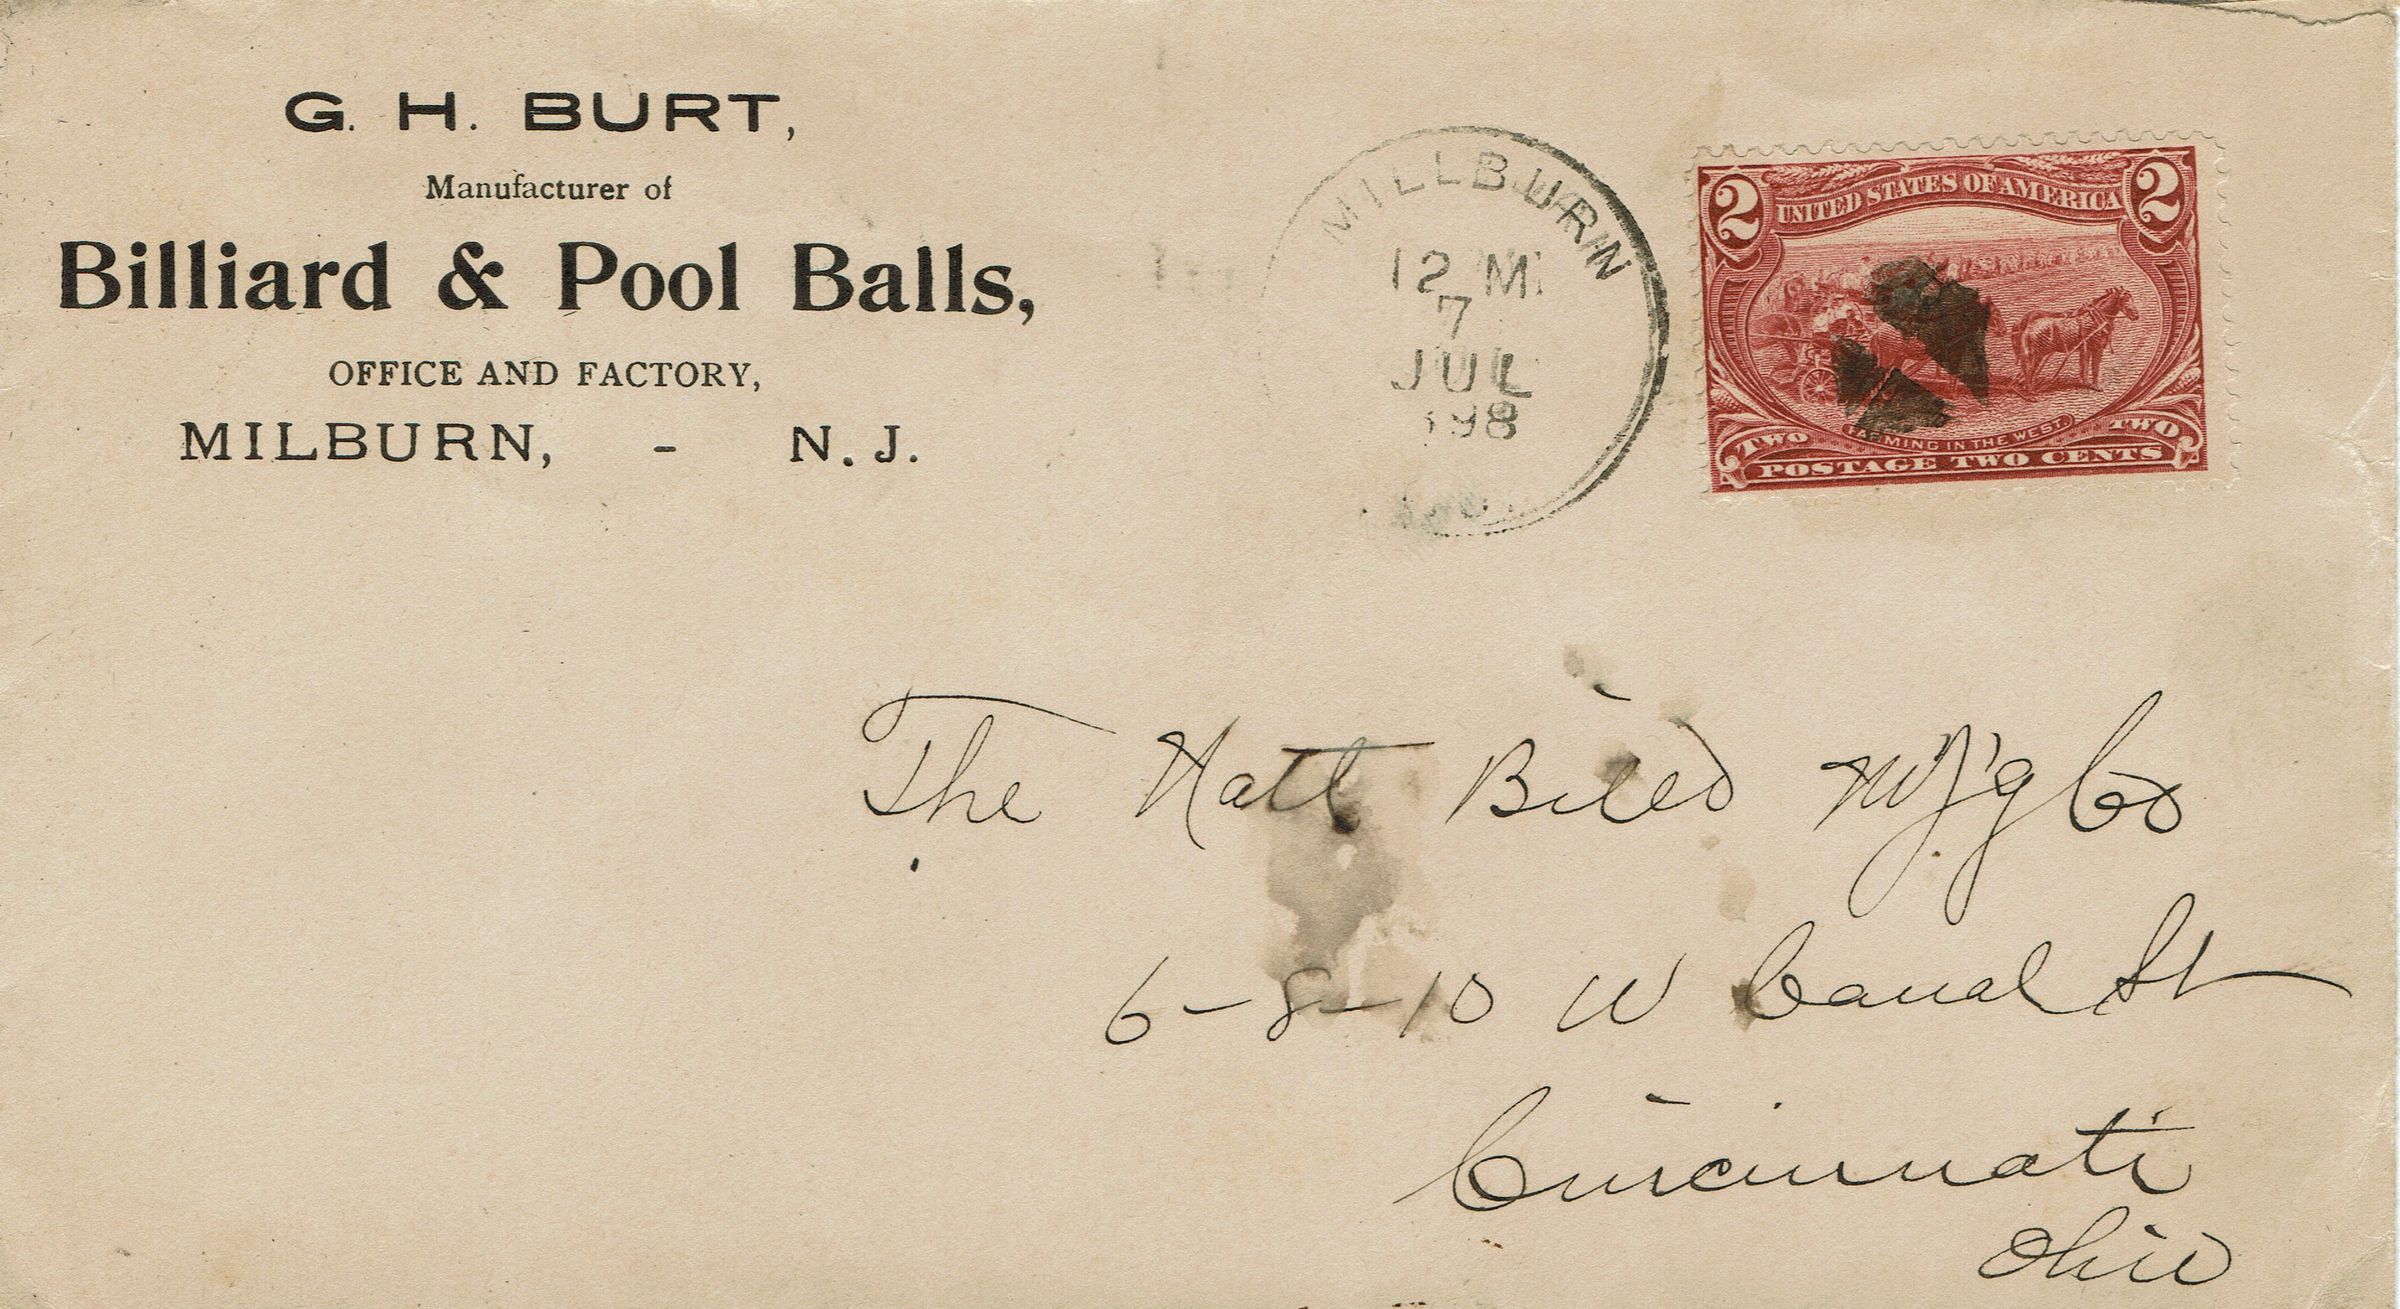 G. H. BURT,
Manufacturer of
Billiard & Pool Balls,
OFFICE AND FACTORY,
MILBURN, - N. J.
MILLBURN
12 M
7
JUL
98
2 UNITED STATES OF AMERICA 2
FARMING IN THE WEST.
TWO TWO
POSTAGE TWO CENTS
The Natl Bill'd M'f'g Co
6-8-10 W Canal St
Cincinnati
Ohio